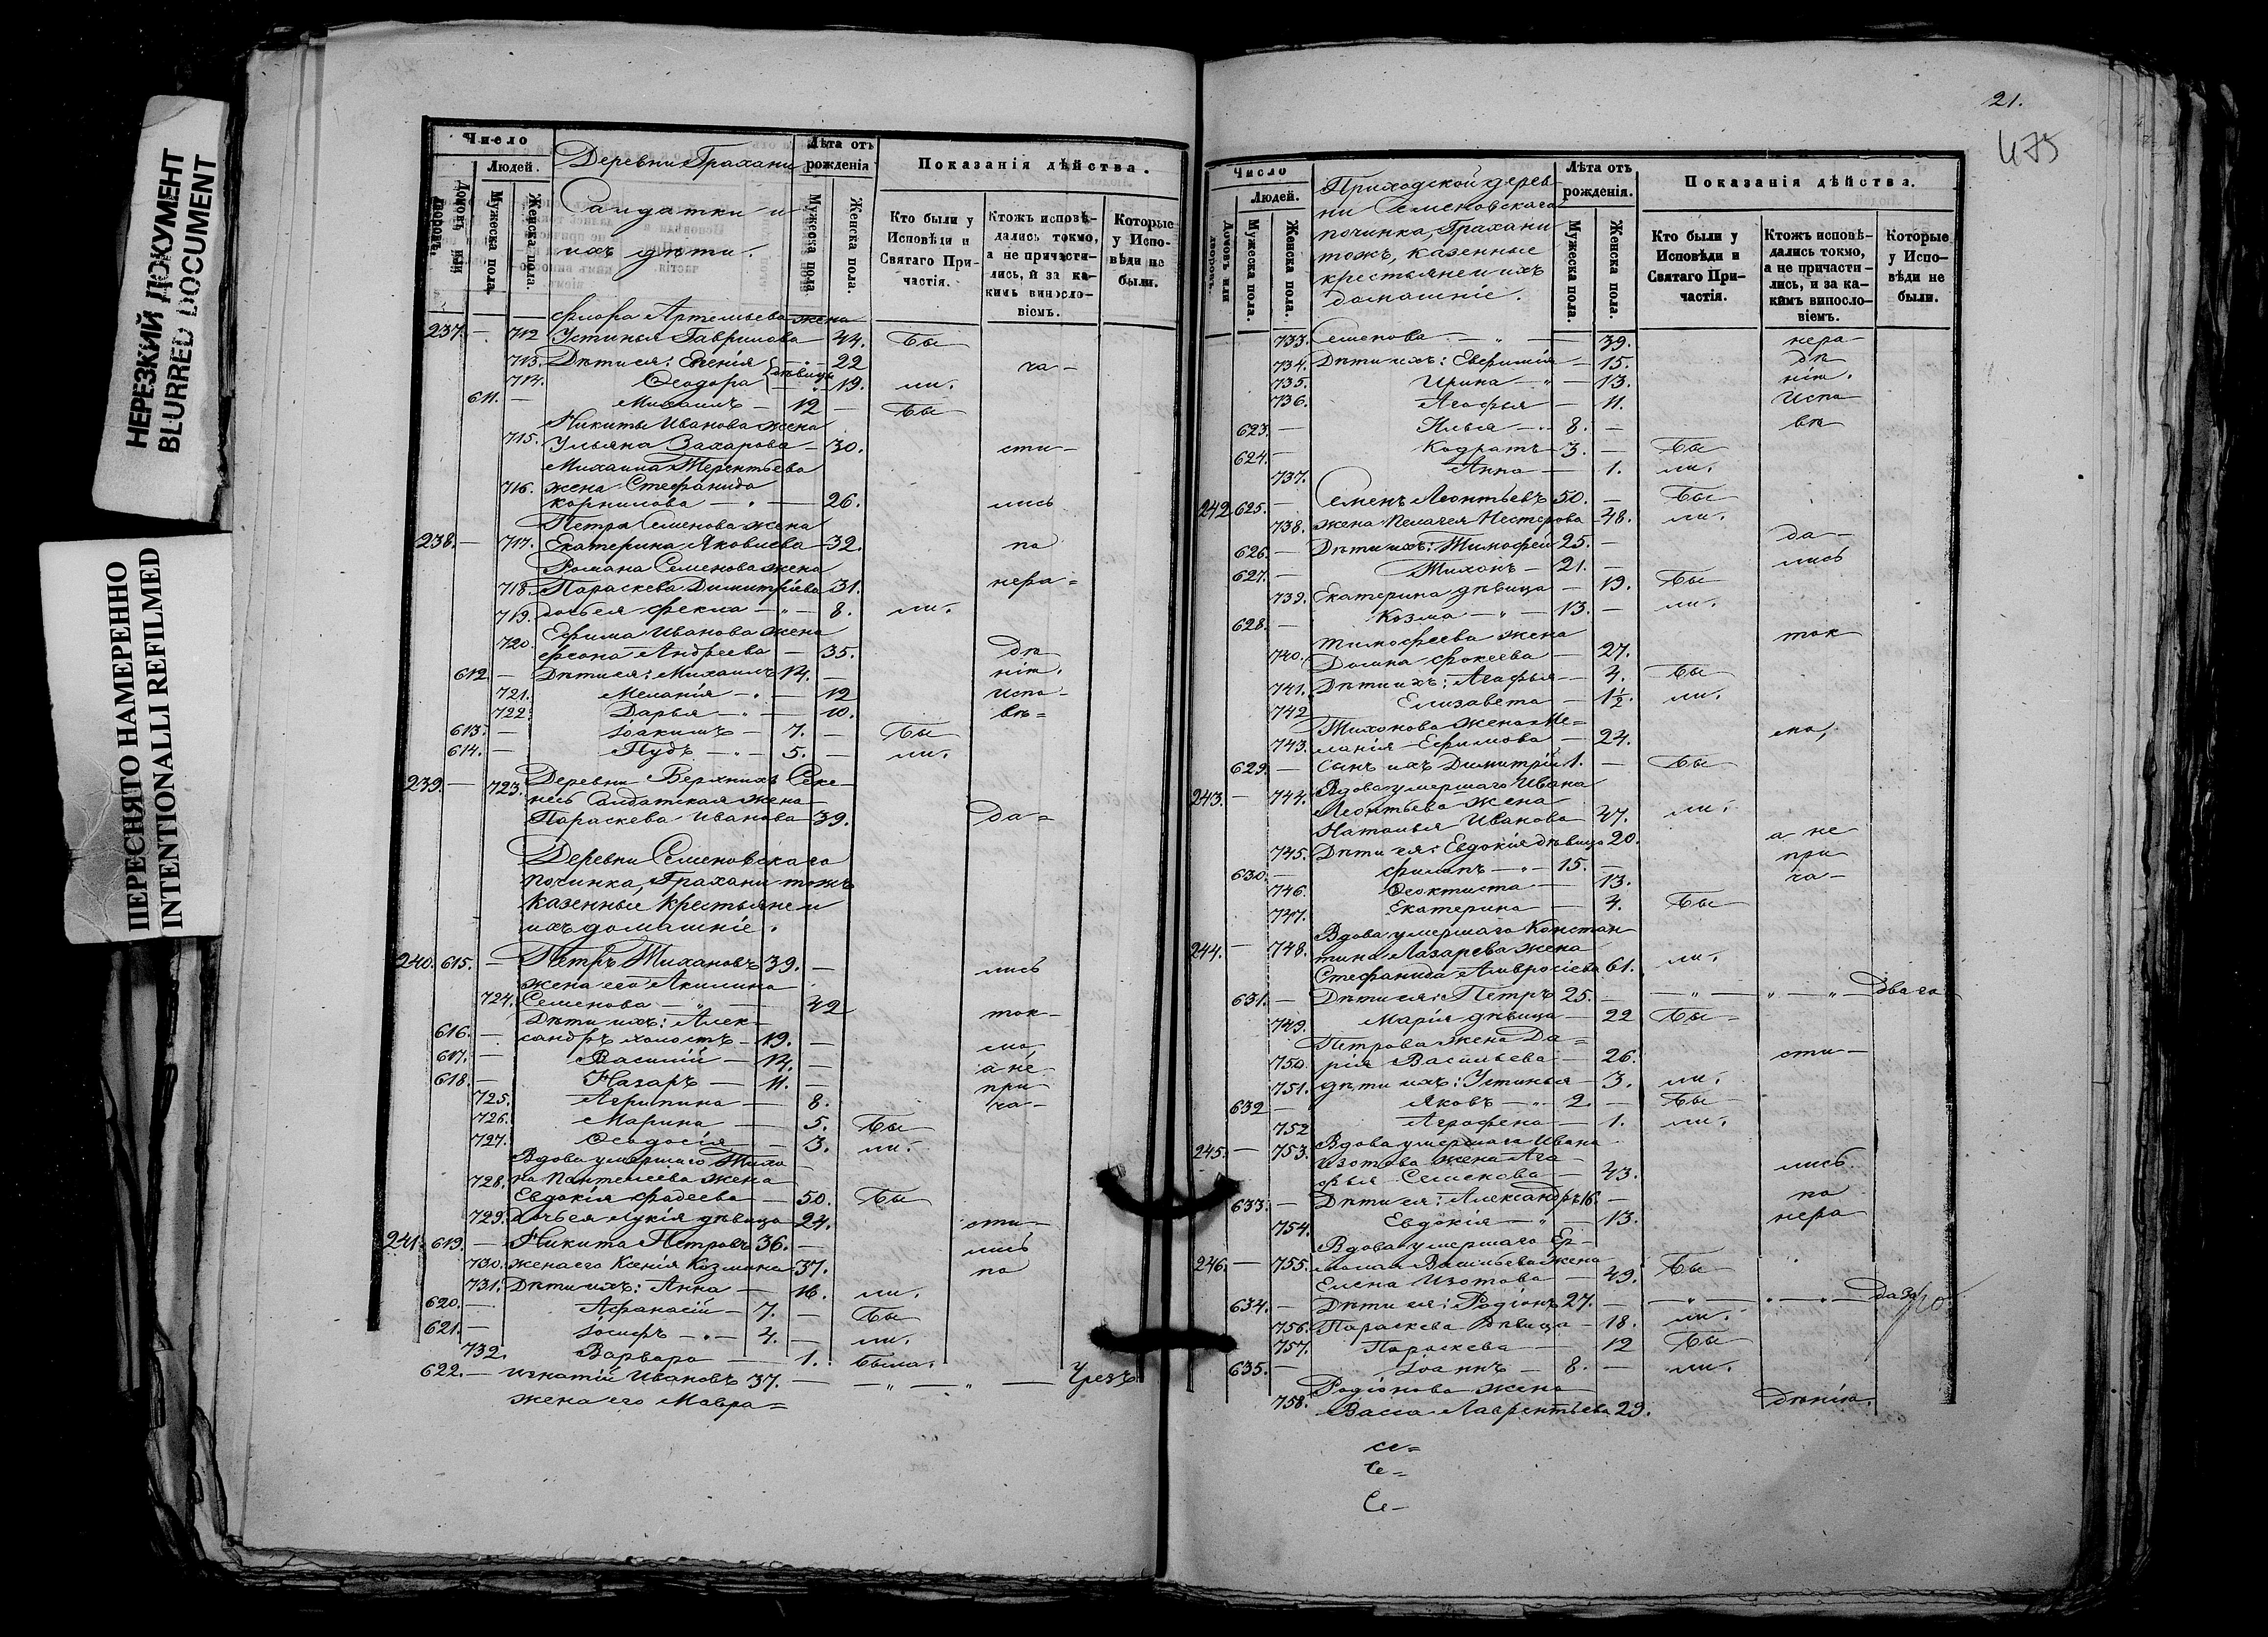 НЕРЕЗКИЙ ДОКУМЕНТ
BLURRED DOCUMENT
ПЕРЕСНЯТО НАМЕРЕННО
INTENTIONALLI REFILMED
Число
Людей.
Домовъ или дворовъ.
Мужеска пола.
Женска пола.
Деревни Грахани
Салдатки и
ихъ дѣти.
Лѣта отъ рожденія
Мужеска пола
Женска пола.
Показанія дѣйства.
Кто были у Исповѣди и Святаго Причастія.
Ктожъ исповѣдались токмо, а не причастились, и за какимъ винословіемъ.
Которые у Исповѣди не были.
Флора Артемьева жена
237. — 712 Устинья Гаврилова 44. Бы
713. Дѣти ея: Евгенія — 22 ча-
714. Ѳеодора дѣвицы — 19. ли.
611. — Михаилъ — 12 — Бы
Никиты Иванова жена
715. Ульяна Захарова — 30. сти-
Михаила Терентьева
716. жена Стефанида
Корнилова — 26. лись
Петра Семенова жена
238. — 717. Екатерина Яковлева 32. по
Романа Семенова жена
718. Параскева Димитріева 31. нера=
719. дочь ея Фекла — 8. ли.
Ефима Иванова жена
720. Феона Андреева — 35. дѣ
612 — Дѣти ея: Михаилъ 14. — нію.
721. Меланія — 12 испо-
722. Дарья — 10. вѣ=
613. — Іоакимъ — 7. — Бы
614. — Пудъ — 5. — ли.
239. — 723. Деревни Верхнихъ Секе-
несь Солдатская жена
Параскева Иванова 39. да=
Деревни Семеновскаго
починка, Грахани тожъ
казенные крестьяне и
ихъ домашніе.
240. 615. — Петръ Тихановъ 39. — лись
жена его Акилина
724. Семенова — 42 ток-
Дѣти ихъ: Алек-
616. — сандръ холостъ — 19. — мо
617. — Василій — 14. — а не
618. — Назаръ — 11. — при
725. Агрипина — 8. ча-
726. Марина — 5. Бы
727. Ѳеодосія — 3. ли.
Вдова умершаго Тихо
728. на Пантелеева жена
Евдокія Фадеева — 50. Бы
729. дочь ея Лукія дѣвица 24. сти-
241. 619. — Никита Петровъ 36. — лись
730. жена его Ксенія Козмина 37. по
731. Дѣти ихъ: Анна — 16. ли.
620. — Афанасій — 7. — Бы
621. — Іосифъ — 4. — ли.
732. Варвара — 1. была.
622. — Игнатій Ивановъ 37. — Чрезъ
жена его Мавра=
21.
475
Число
Людей.
Домовъ или дворовъ.
Мужеска пола.
Женска пола.
Приходской дерев
ни Семеновскаго
починка, Грахани
тожъ, казенные
крестьяне и ихъ
домашніе.
Лѣта отъ рожденія.
Мужеска пола.
Женска пола.
Показанія дѣйства.
Кто были у Исповѣди и Святаго Причастія.
Ктожъ исповѣдались токмо, а не причастились, и за какимъ винословіемъ.
Которые у Исповѣди не были.
733. Семенова — 39. нера-
734. Дѣти ихъ: Евфимія — 15. дѣ
735. Ирина — 13. нію.
736. Агафья — 11. испо
623. — Илья — 8. — вѣ
624. — Кодратъ — 3. — Бы
737. Анна — 1. ли.
242 625. — Семенъ Леонтьевъ 50. — Бы
738. жена Пелагея Нестерова 48. ли.
626. — Дѣти ихъ: Тимофей 25. — да-
627. — Тихонъ — 21. — лись
739. Екатерина дѣвица — 19. Бы
628. — Козма — 13. — ли.
Тимофеева жена ток
740. Домна Фокеева — 27.
741. Дѣти ихъ: Агафья — 4. Бы
742 Елизавета — 1½. ли.
Тихонова жена Ме=
743. ланія Ефимова — 24. мо,
629. — сынъ ихъ Димитрій 1. — Бы
243. — 744. Вдова умершаго Ивана
Леонтьева жена
Наталья Иванова 47. ли.
745. Дѣти ея: Евдокія дѣвица 20. а не
630. — Филипъ — 15. — при
746. Ѳеоктиста — 13. ча-
747. Екатерина — 4. Бы
Вдова умершаго Констан
244. — 748. тина Лазарева жена
Стефанида Амвросіева 61. ли.
631. — Дѣти ея: Петръ 25. — Дваго
749. Марія дѣвица — 22 Бы-
Петрова жена Да=
750. рія Васильева — 26. сти-
751. дѣти ихъ: Устинья — 3. ли.
632 — Яковъ — 2. — Бы
752 Аграфена — 1. ли.
245. — 753. Вдова умершаго Ивана
Изотова жена Ага-
фья Семенова — 43. лись
633. — Дѣти ея: Александръ 16 — по
754. Евдокія — 13. нера
Вдова умершаго Ер-
246. — 755. молая Васильева жена
Елена Изотова — 49. Бы
634. — Дѣти ея: Родіонъ 27. —
756. Параскева дѣвица — 18. ли.
757. Параскева — 12 Бы
635. — Іоаннъ — 8. — ли.
Родіонова жена
758. Васса Лаврентьева 29. дѣнію.
се=
Се=
Се-